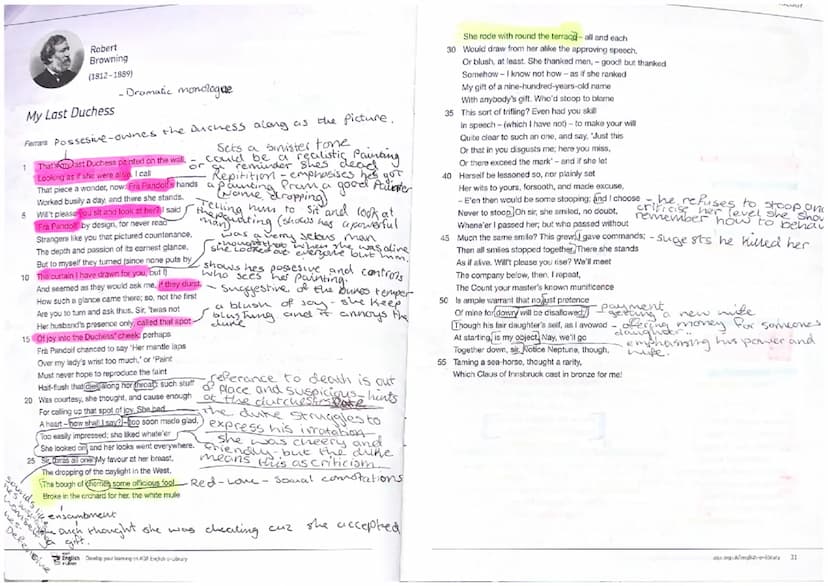 Robert
Browning
(1812–1889)
- Dramatic monologue
My Last Duchess
Ferrara
Possesive-owns the Duchess along as the picture.
Sets a sinister tone
1 That's my last Duchess painted on the wall,
- could be a realistic painting
Looking as if she were alive. I call
or a reminder she's dead
That piece a wonder, now: Fra Pandolf's hands
Repitition - emphasises he's got
a painting from a good painter
(name dropping)
Worked busily a day, and there she stands.
5 Will't please you sit and look at her? I said
Telling him to sit and look at
the painting (shows he's a powerful
man)
'Fra Pandolf' by design, for never read
Strangers like you that pictured countenance,
was a very jealous man
The depth and passion of its earnest glance,
she looked at everyone but him.
But to myself they turned (since none puts by
10 The curtain I have drawn for you, but I)
shows his possesive and controls
who sees her painting.
And seemed as they would ask me, if they durst,
- suggestive of the dukes temper
How such a glance came there; so, not the first
Are you to turn and ask thus. Sir, 'twas not
a blush of joy - she keep
blushing and it annoys the
duke
Her husband's presence only, called that spot
15 Of joy into the Duchess' cheek: perhaps
Fra Pandolf chanced to say 'Her mantle laps
Over my lady's wrist too much,' or 'Paint
Must never hope to reproduce the faint
Half-flush that dies along her throat'; such stuff
referance to death is out
of place and suspicious - hints
at the dutchess's fate
20 Was courtesy, she thought, and cause enough
For calling up that spot of joy. She had
the duke struggles to
express his irrotation
A heart – how shall I say? – too soon made glad,
Too easily impressed; she liked whate'er
she was cheery and
friendly - but the duke
means this as criticism
She looked on, and her looks went everywhere.
25 Sir, 'twas all one! My favour at her breast,
The dropping of the daylight in the West,
The bough of cherries some officious fool
Red - Love - sexual connotations
Broke in the orchard for her, the white mule
enjambment
thought she was cheating cuz she accepted
a gift.
English
e-Library
Develop your learning on AQA English e-Library
She rode with round the terrace – all and each
30 Would draw from her alike the approving speech,
Or blush, at least. She thanked men, – good! but thanked
Somehow – I know not how – as if she ranked
My gift of a nine-hundred-years-old name
With anybody's gift. Who'd stoop to blame
35 This sort of trifling? Even had you skill
In speech – (which I have not) – to make your will
Quite clear to such an one, and say, 'Just this
Or that in you disgusts me; here you miss,
Or there exceed the mark' – and if she let
40 Herself be lessoned so, nor plainly set
Her wits to yours, forsooth, and made excuse,
– E'en then would be some stooping; and I choose
- he refuses to stoop and
criticise her level she should
remember how to behave
Never to stoop. Oh sir, she smiled, no doubt,
Whene'er I passed her; but who passed without
45 Much the same smile? This grew; I gave commands;
- sugests he killed her
Then all smiles stopped together. There she stands
As if alive. Will't please you rise? We'll meet
The company below, then. I repeat,
The Count your master's known munificence
50 Is ample warrant that no just pretence
Of mine for dowry will be disallowed;
payment
getting a new wife
Though his fair daughter's self, as I avowed
- offering money for someones
daughter.
At starting, is my object. Nay, we'll go
emphasising his power and
Together down, sir. Notice Neptune, though,
55 Taming a sea-horse, thought a rarity,
Which Claus of Innsbruck cast in bronze for me!
31